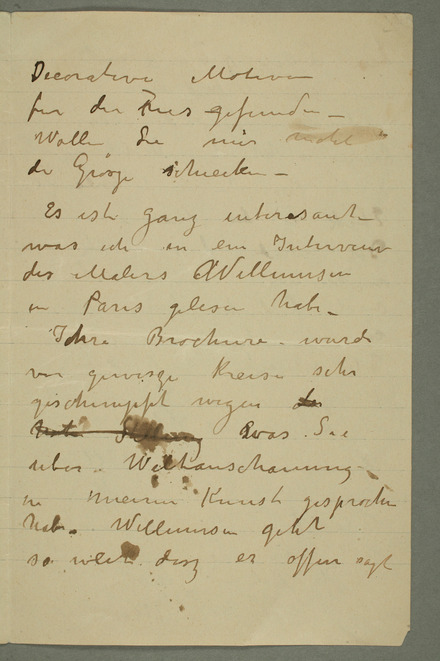 Decorative Motiven
für den Fries gefunden –
Wollen Sie mir nicht
die Grösze schicken –
Es ist ganz interesant
was ich in ein Interview
des Malers Willumsen
in Paris gelesen habe –
Ihre Brochure wurde
von gewisze Kreise sehr
geschimpft wegen des
was Sie
über Welthanschauung
in meiner Kunst gesprochen
habe. Willumsen geht
so weit dasz er offen sagt